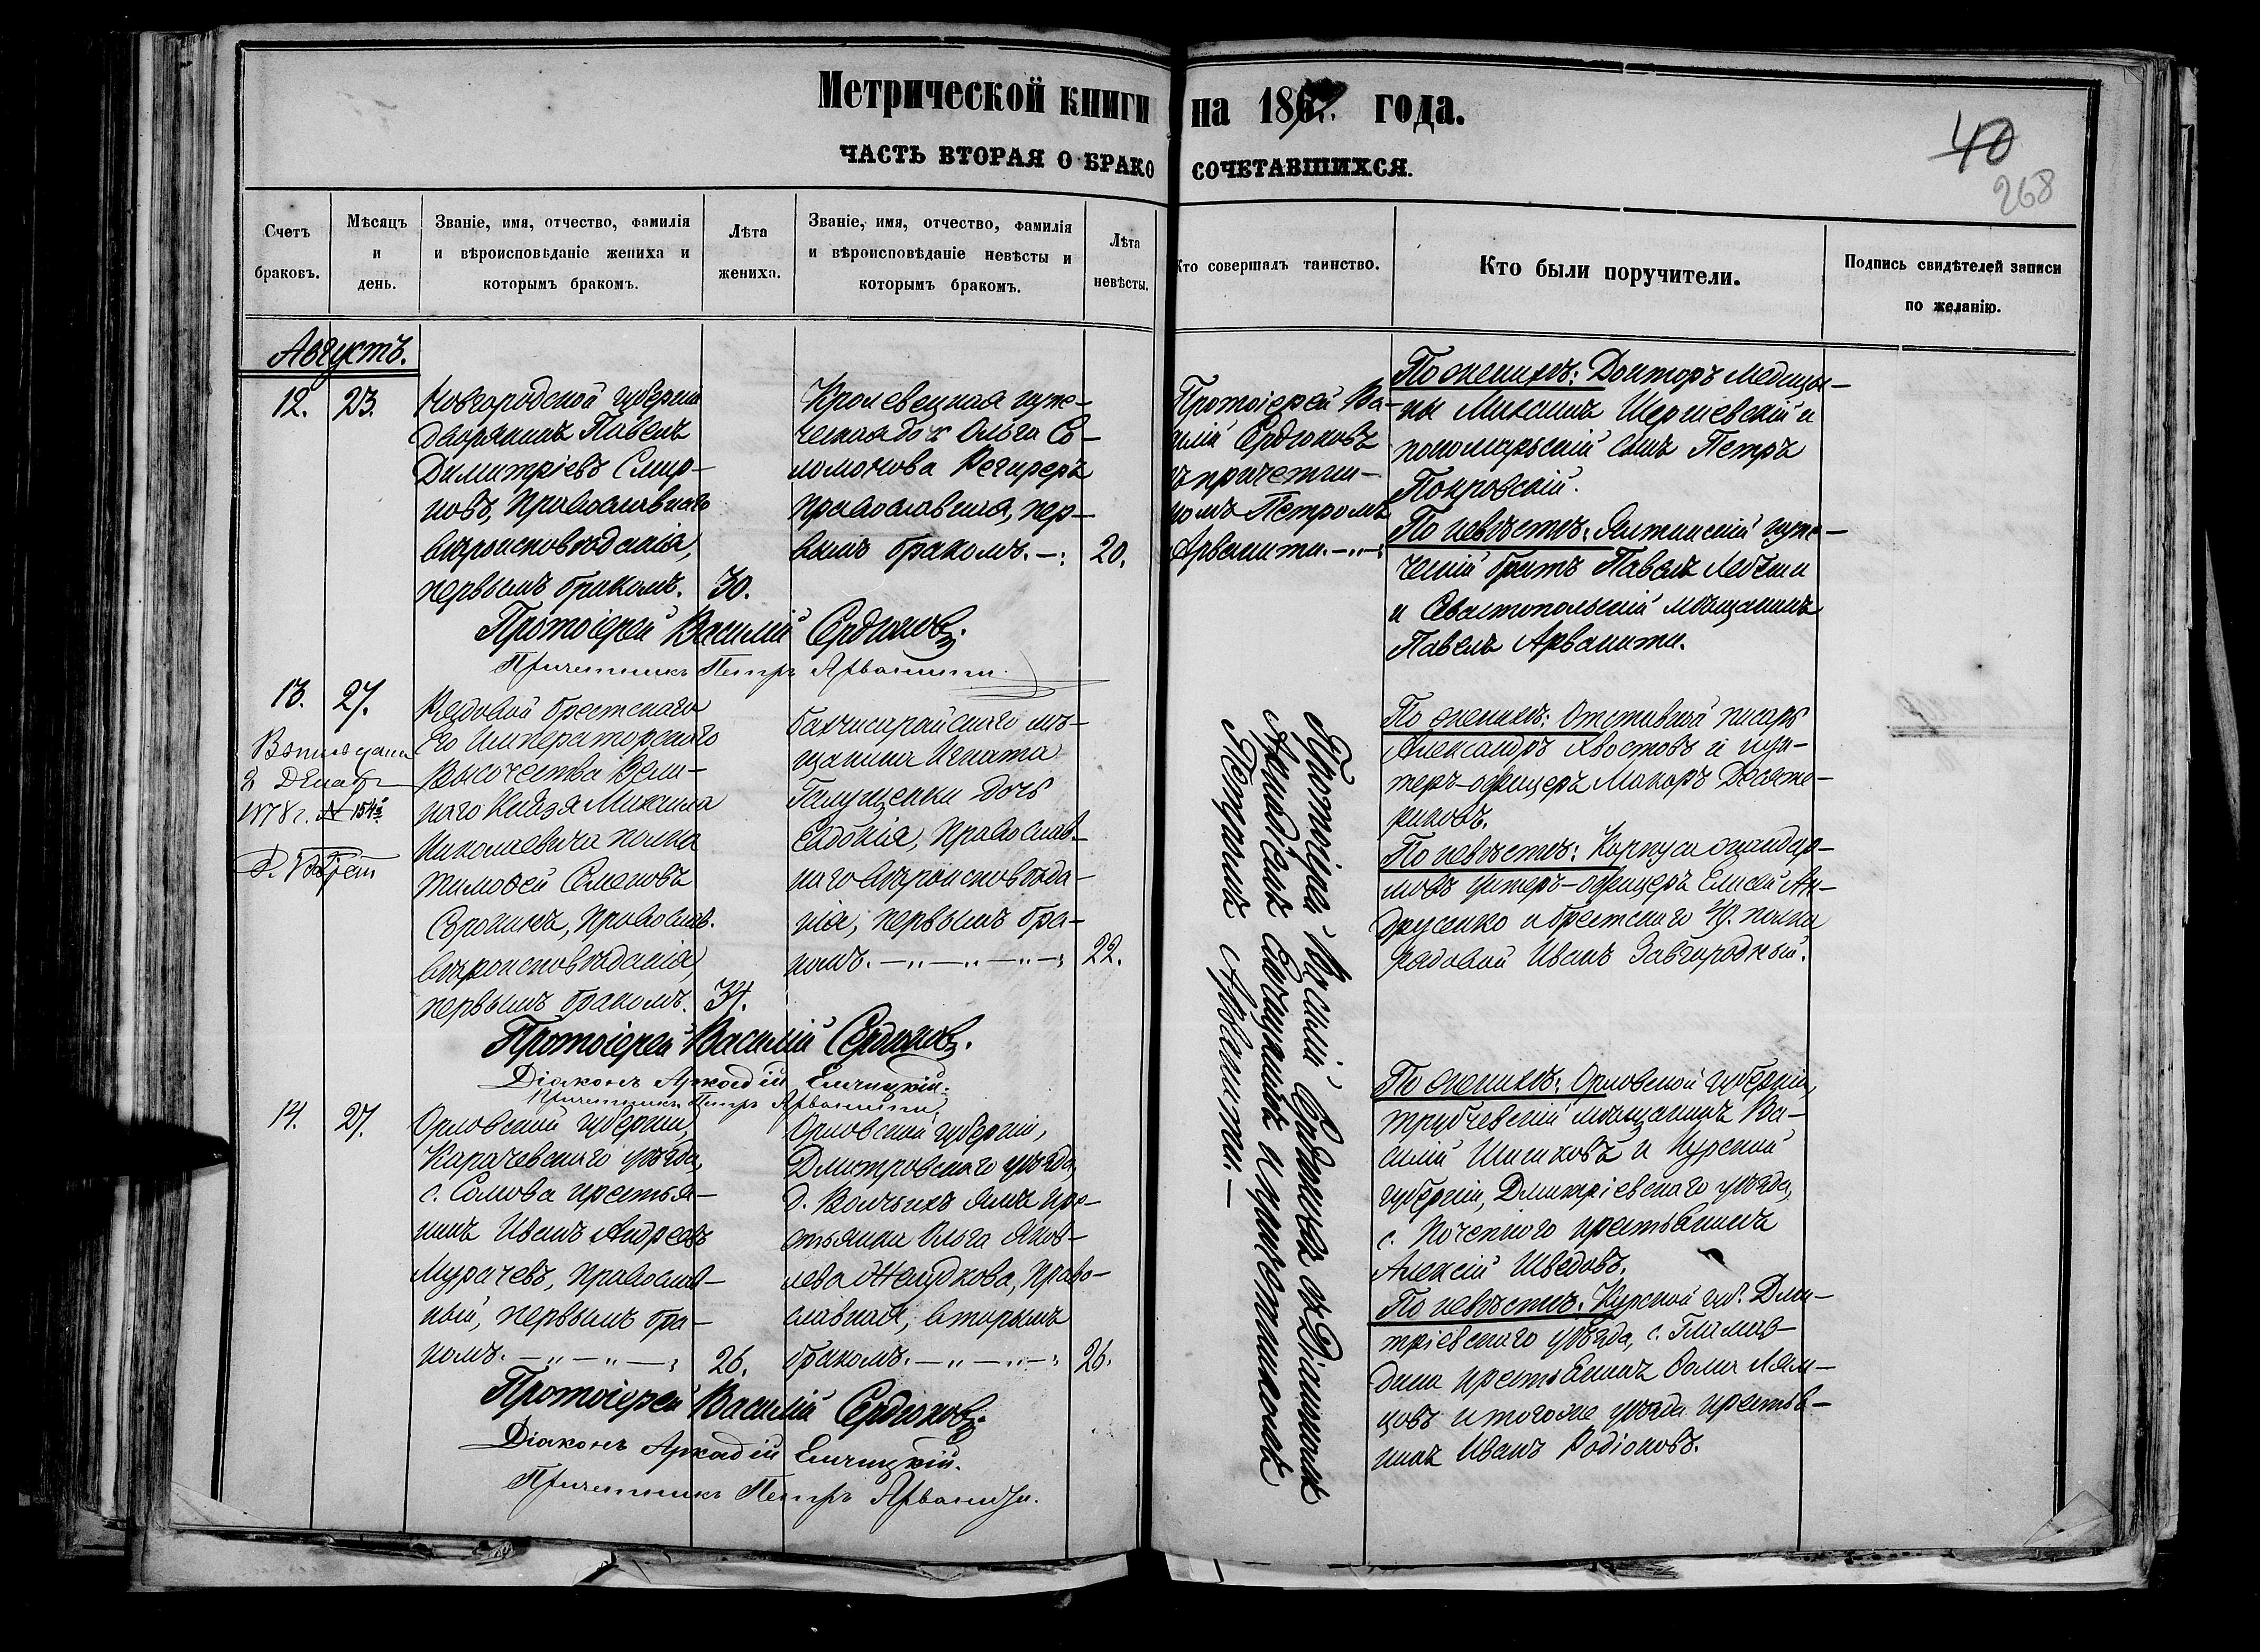 Метрической книги на 186 года.
ЧАСТЬ ВТОРАЯ О БРАКОСОЧЕТАВШИХСЯ.
40
268
Счетъ браковъ.
Мѣсяцъ и день.
Званіе, имя, отчество, фамилія
и вѣроисповѣданіе жениха и
которымъ бракомъ.
Лѣта жениха.
Званіе, имя, отчество, фамилія
и вѣроисповѣданіе невѣсты и
которымъ бракомъ.
Лѣта невѣсты.
Кто совершалъ таинство.
Кто были поручители.
Подпись свидѣтелей записи
по желанію.
Августъ.
12. 23.
Новгородской губерніи
дворянинъ Павелъ
Димитріевъ Смир-
новъ, Православнаго
вѣроисповѣданія,
первымъ бракомъ. 30.
Кролевецкая купе-
ческая дочь Ольга Со-
ломонова
православная, пер-
вымъ бракомъ. 20.
Протоіерей Ва-
силій Сердюковъ
съ причетни-
комъ Петромъ
Арванити.
По женихѣ: Докторъ Медицы-
ны Михаилъ и
пономарскій сынъ Петръ
Покровскій.
По невѣстѣ: Ялтинскій купе-
ческій братъ Павелъ
и Севастопольскій мѣщанинъ
Павелъ Арванити.
Протоіерей Василій Сердюковъ.
Причетникъ Петръ Арванити.
13. 27.
Выпись дана
2 Декабр
1878 г. N 154
Рядовой Брестскаго
Его Императорскаго
Высочества Вели-
каго Князя Михаила
Николаевича полка
Тимофей Семеновъ
Сорокинъ, Православ.
вѣроисповѣданія
первымъ бракомъ. 34.
Бахчисарайскаго мѣ-
щанина Игната
Галущенки дочь
Евдокія, Православ-
наго вѣроисповѣда-
нія, первымъ бра-
комъ. 22.
Протоіерей Василій Сердюковъ съ Діакономъ
Аркадіемъ Елчицкимъ и причетникомъ
Петромъ Арванити.
По женихѣ: Отставной писарь
Александръ Хвостовъ и ун-
теръ-офицеръ Макаръ Десяте-
риковъ.
По невѣстѣ: Корпуса жандар-
мовъ унтеръ-офицеръ Елисей Ан-
друсенко и Брестскаго 49. полка
рядовой Иванъ Завгородный.
Протоіерей Василій Сердюковъ.
Діаконъ Аркадій Елчицкій.
Причетникъ Петръ Арванити.
14. 27.
Орловской губерніи,
Карачевскаго уѣзда,
с. Сомова крестья-
нинъ Иванъ Андреевъ
Мурачевъ, православ-
ный, первымъ бра-
комъ. 26.
Орловской губерніи,
Дмитровскаго уѣзда,
д. Волчьихъ Ямъ кре-
стьянка Ольга Яков-
лева Желудкова, право-
славная, вторымъ
бракомъ. 26.
По женихѣ: Орловской губерніи,
трубчевскій мѣщанинъ Ва-
силій Шишковъ и Курской
губерніи, Дмитріевскаго уѣзда,
с. Почепного крестьянинъ
Алексій Шведовъ.
По невѣстѣ: Курской губ. Дми-
тріевскаго уѣзда, с.
крестьянинъ Ѳома Лям-
цовъ и того же уѣзда крестья-
нинъ Иванъ Родіоновъ.
Протоіерей Василій Сердюковъ.
Діаконъ Аркадій Елчицкій.
Причетникъ Петръ Арванити.